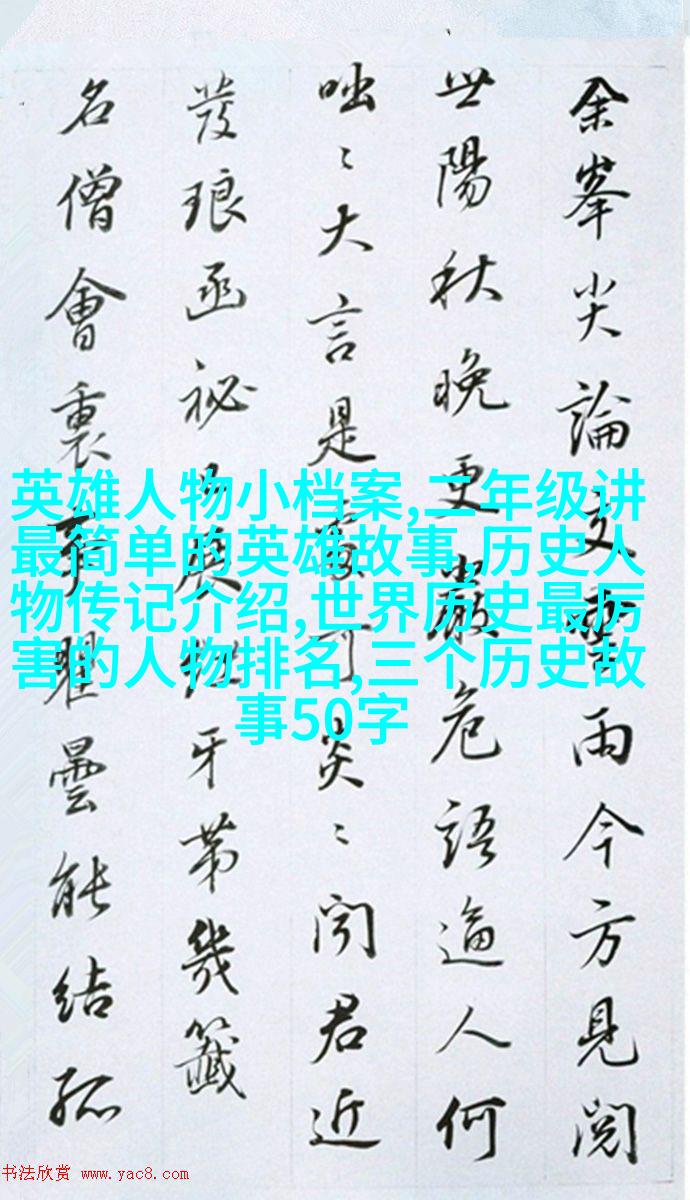 余峯尖論文雨今方見閱
世陽秋晚更嚴危語逼人何
咄〻大言是可炎〻聞君近
發琅函祕展牙苐幾籤
名僧會裏瞿曇能結孤
英雄人物小档案,二年级讲
最简单的英雄故事,历史人
物传记介绍,世界历史最厉
害的人物排名,三个历史故
事50字
书法欣赏 www.yac8.com